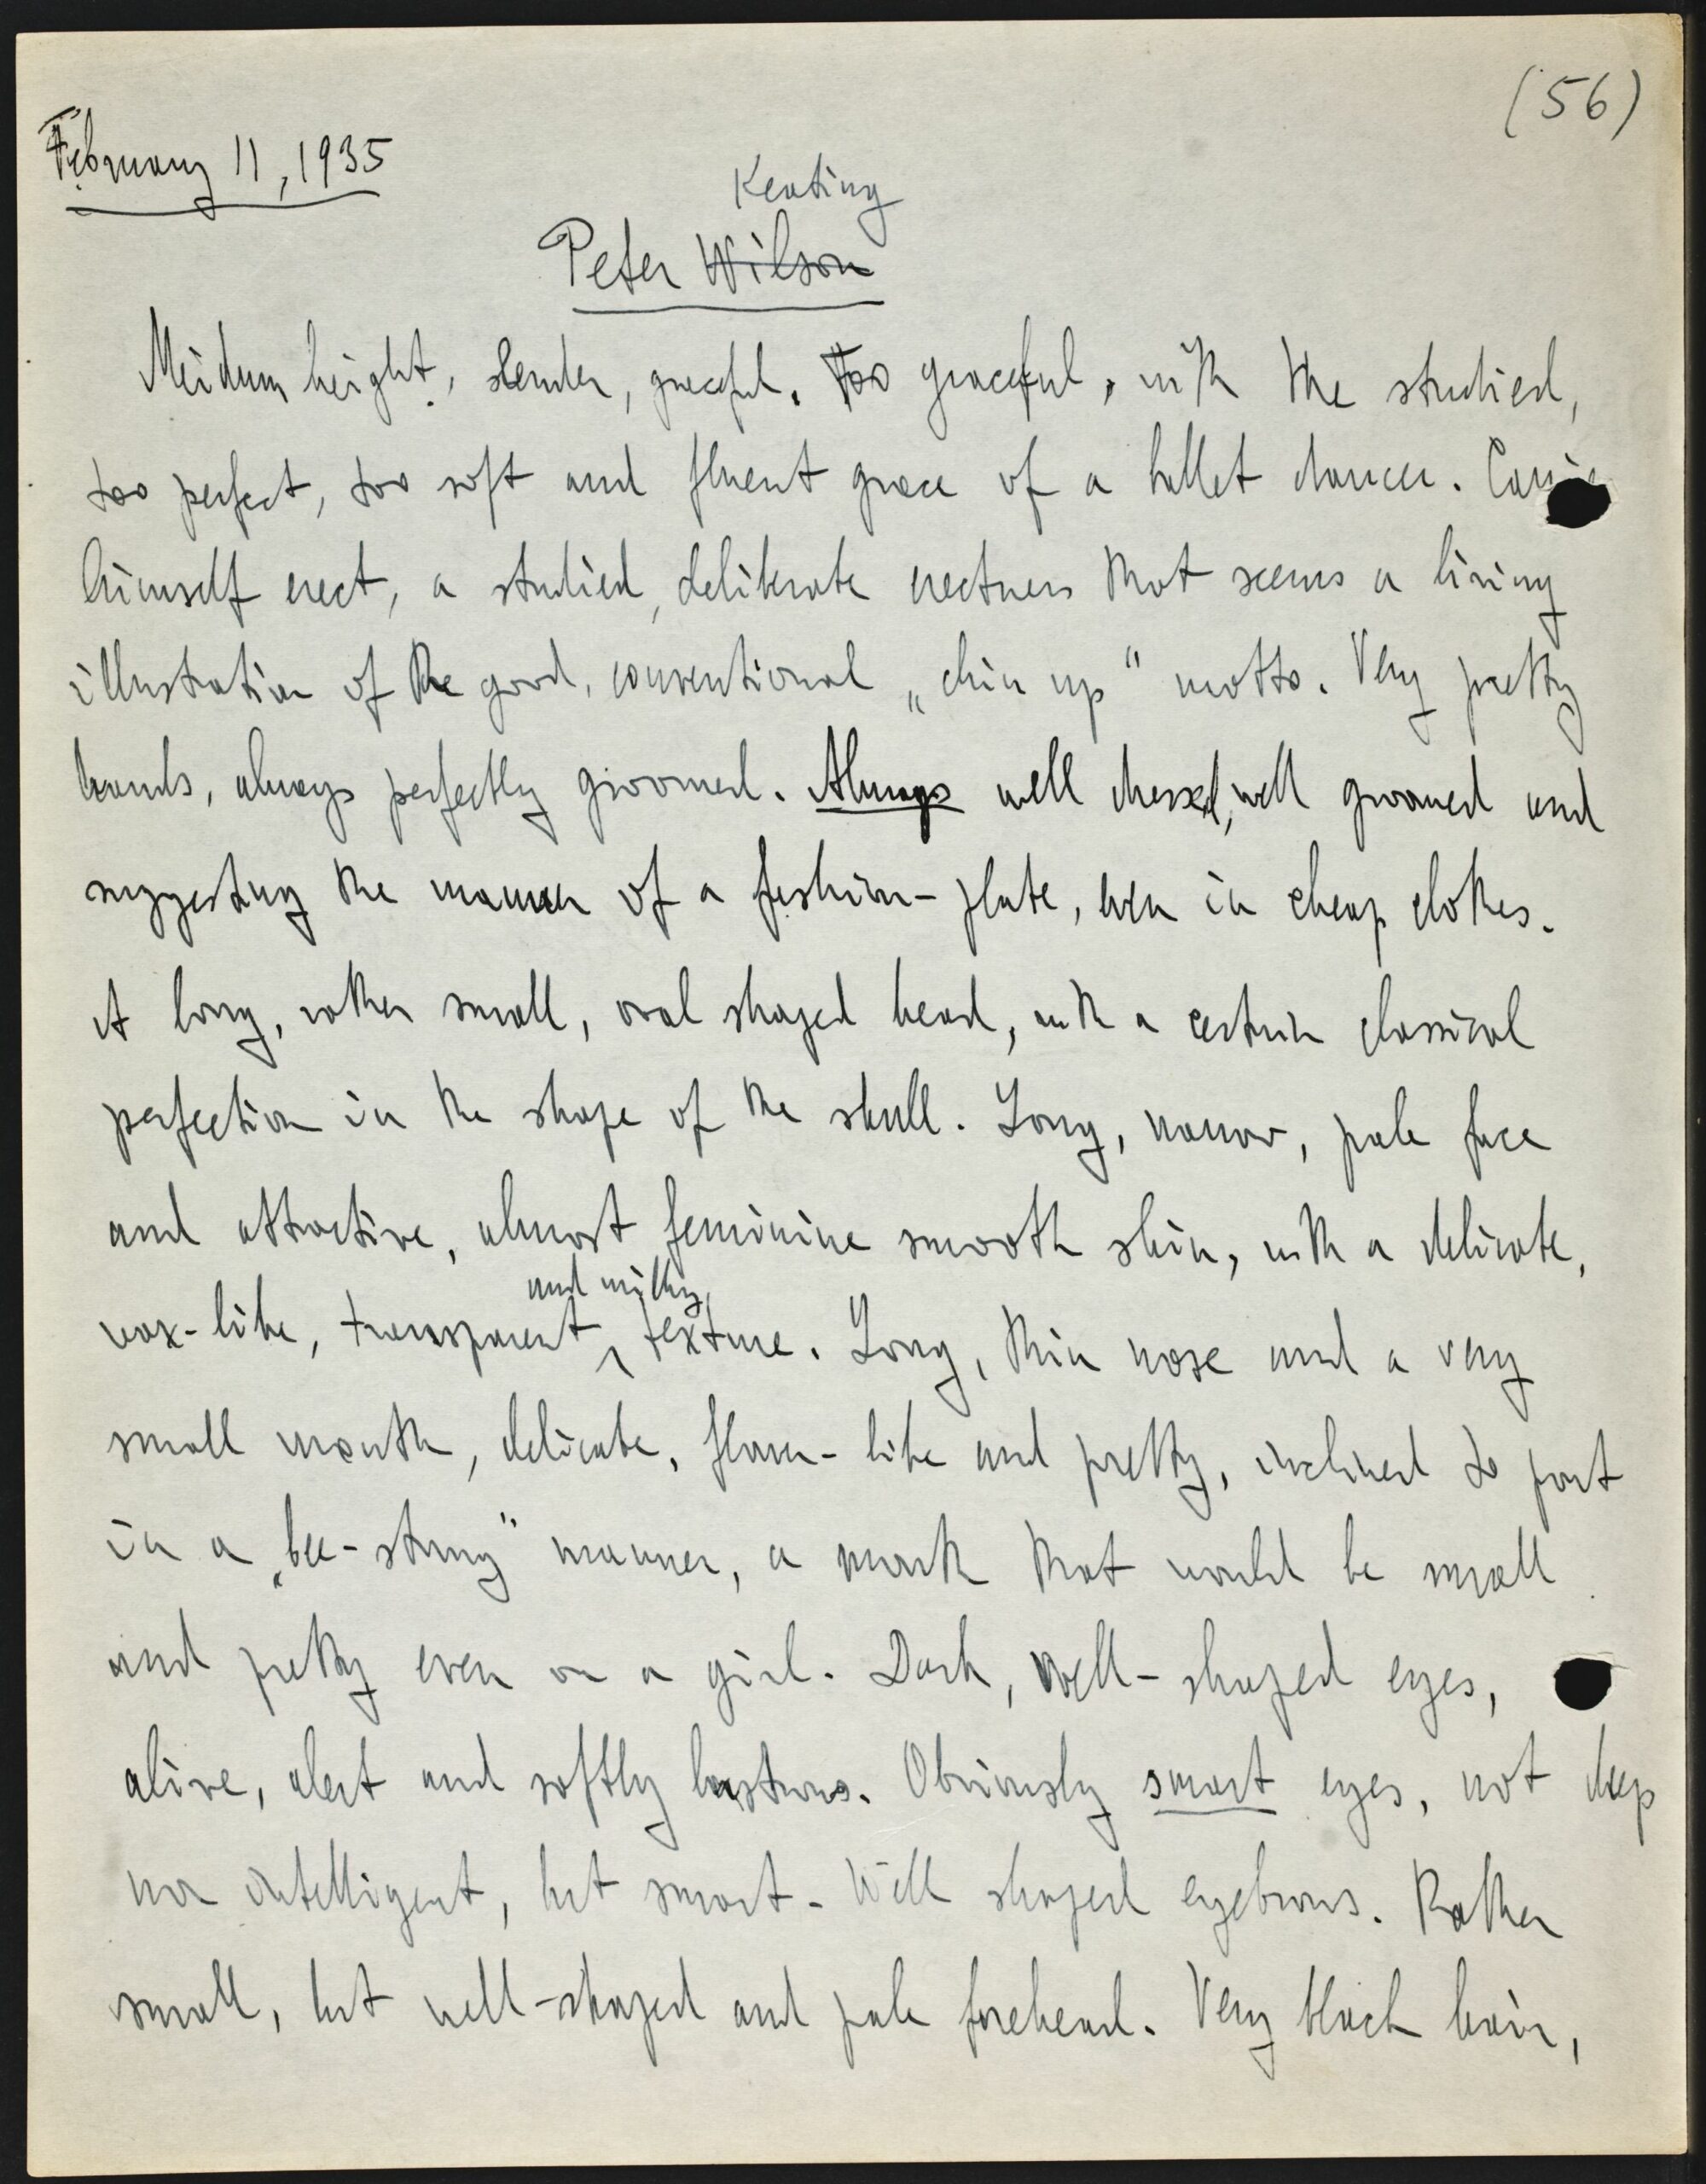 (56)
February 11, 1935
Keating
Peter Wilson
Meidum height, slender, graceful. Too graceful, with the studied,
too perfect, too soft and fluent grace of a ballet dancer.
himself erect, a studied, deliberate erectness that seems a living
illustration of the good, conventional „chin up“ motto. Very pretty
hands, always perfectly groomed. Always well dressed, well groomed and
suggesting the manner of a feshion-plate, even in cheap clothes.
A long, rather small, oval shaped head, with a certain classical
perfection in the shape of the skull. Long, narrow, pale face
and attractive, almost feminine smooth skin, with a delicate,
and milky,
wax-like, transparent texture. Long, thin nose and a very
small mouth, delicate, flower-like and pretty, inclined to pout
in a „bee-stung“ manner, a mouth that would be small
and pretty even on a girl. Dark, well-shaped eyes,
alive, alert and softly lustrous. Obviously smart eyes, not deep
nor intelligent, but smart. Well shaped eyebrows. Rather
small, but well-shaped and pale forehead. Very black hair,